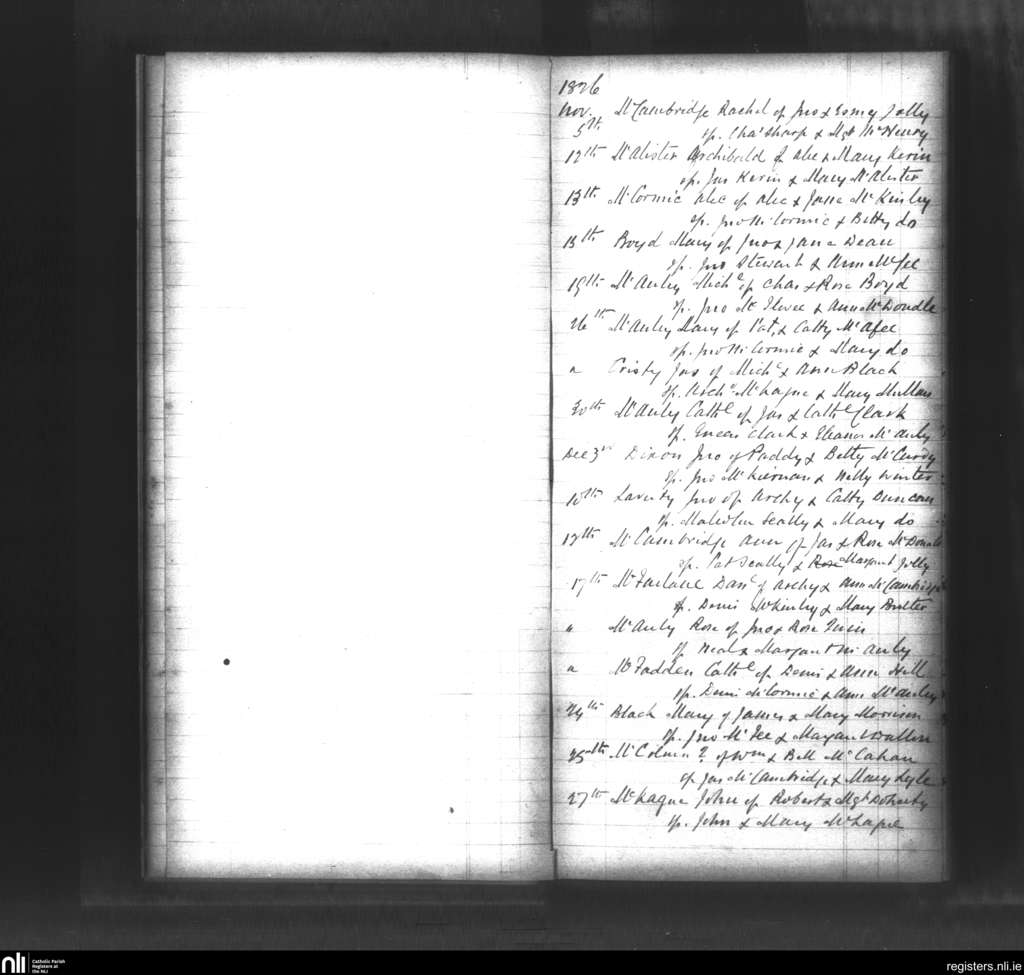 1826
Nov. McCambridge Rachel of Jno & Jolly
5th sp. Chas Sharp & Mgt McHenry
12th McAlister Archibald of Alec & Mary Kerin
sp. Jas Kerin & Mary McAlister
13th McCormic Alec of Alec & Jane McKinley
sp. Jno McCormic & Betty do
15th Boyd Mary of Jno & Jane Dean
sp. Jno Stewart & Ann McFee
19th McAuley Michl of Chas & Rose Boyd
sp. Jno McElvee & Ann McDondle
26th McAuley Mary of Pat. & Catty McAfee
sp. Jno McCormic & Mary do
" Cristy Jas of Michl & Ann Black
sp. Archd McKague & Mary Mullan
30th McAuley Cathe of Jas & Cathe Clark
sp. Eneas Clark & Eleanor McAuley
Dec 3rd Dixon Jno of Paddy & Betty McCurdy
sp. Jno McKiernan & Nelly Winter
10th Laverty Jno of Archy & Catty Duncan
sp. Malcolm Scally & Mary do
12th McCambridge Ann of Jas & Rose McDonald
sp. Pat Scally & Rose Margaret Jolly
17th McFarlane Danl of Archy & Ann McCambridge
sp. Denis McKinley & Mary Butler
" McAuley Rose of Jno & Rose Quin
sp. Neal & Margaret McAuley
" McFadden Cathe of Denis & Ann Hill
sp. Denis McCormic & Ann McAuley
24th Black Mary of James & Mary Morrison
sp. Jno McFee & Margaret
25th ? of Wm & Bell McCahan
sp Jas McCambridge & Mary Lyle
27th McKague John of Robert & Mgt Doherty
sp. John & Mary McKague
nli
Catholic Parish
Registers at
the NLI
registers.nli.ie